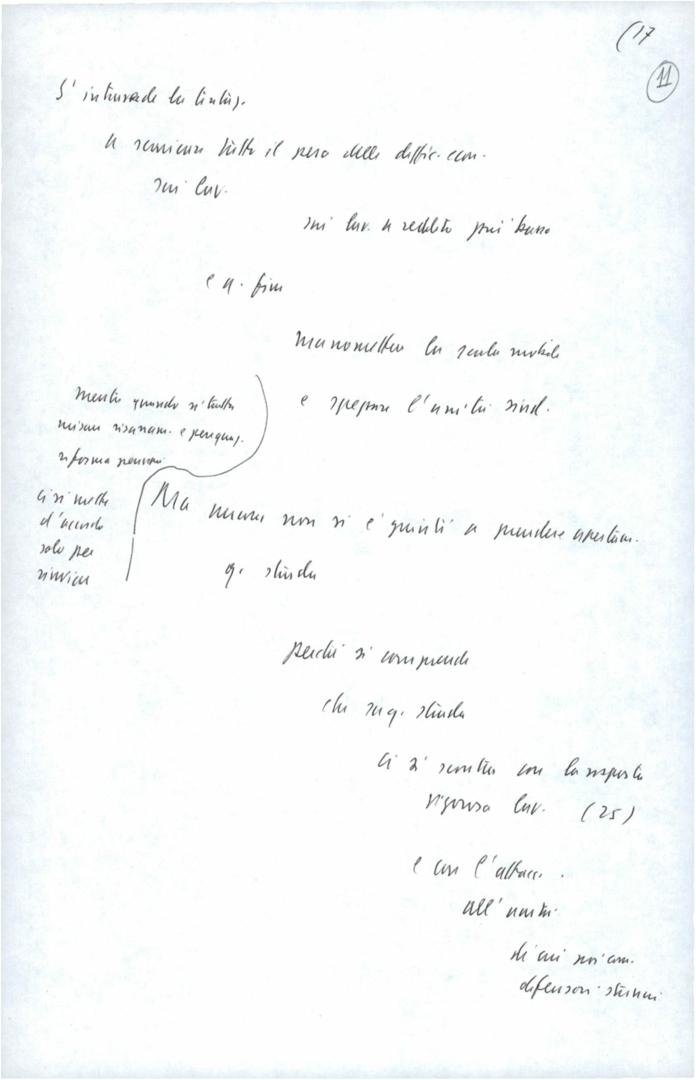 (17
11
S' intravede la tentaz.
a scaricare tutto il peso delle diffic. econ.
sui lav.
sui lav. a reddito più basso
e a. fini
manomettere la scala mobile
e spezzare l'unità sind.
mentre quando si tratta
misure risanam. e perequaz.
riforma pensioni
ci si mette
d'accordo
solo per
rinviare
Ma ancora non si è giunti a prendere apertam.
q. strada
perché si comprende
che su q. strada
ci si scontra con la risposta
rigorosa lav. (25)
e con l'attacc.
all' unità
di cui noi com.
difensori strenui